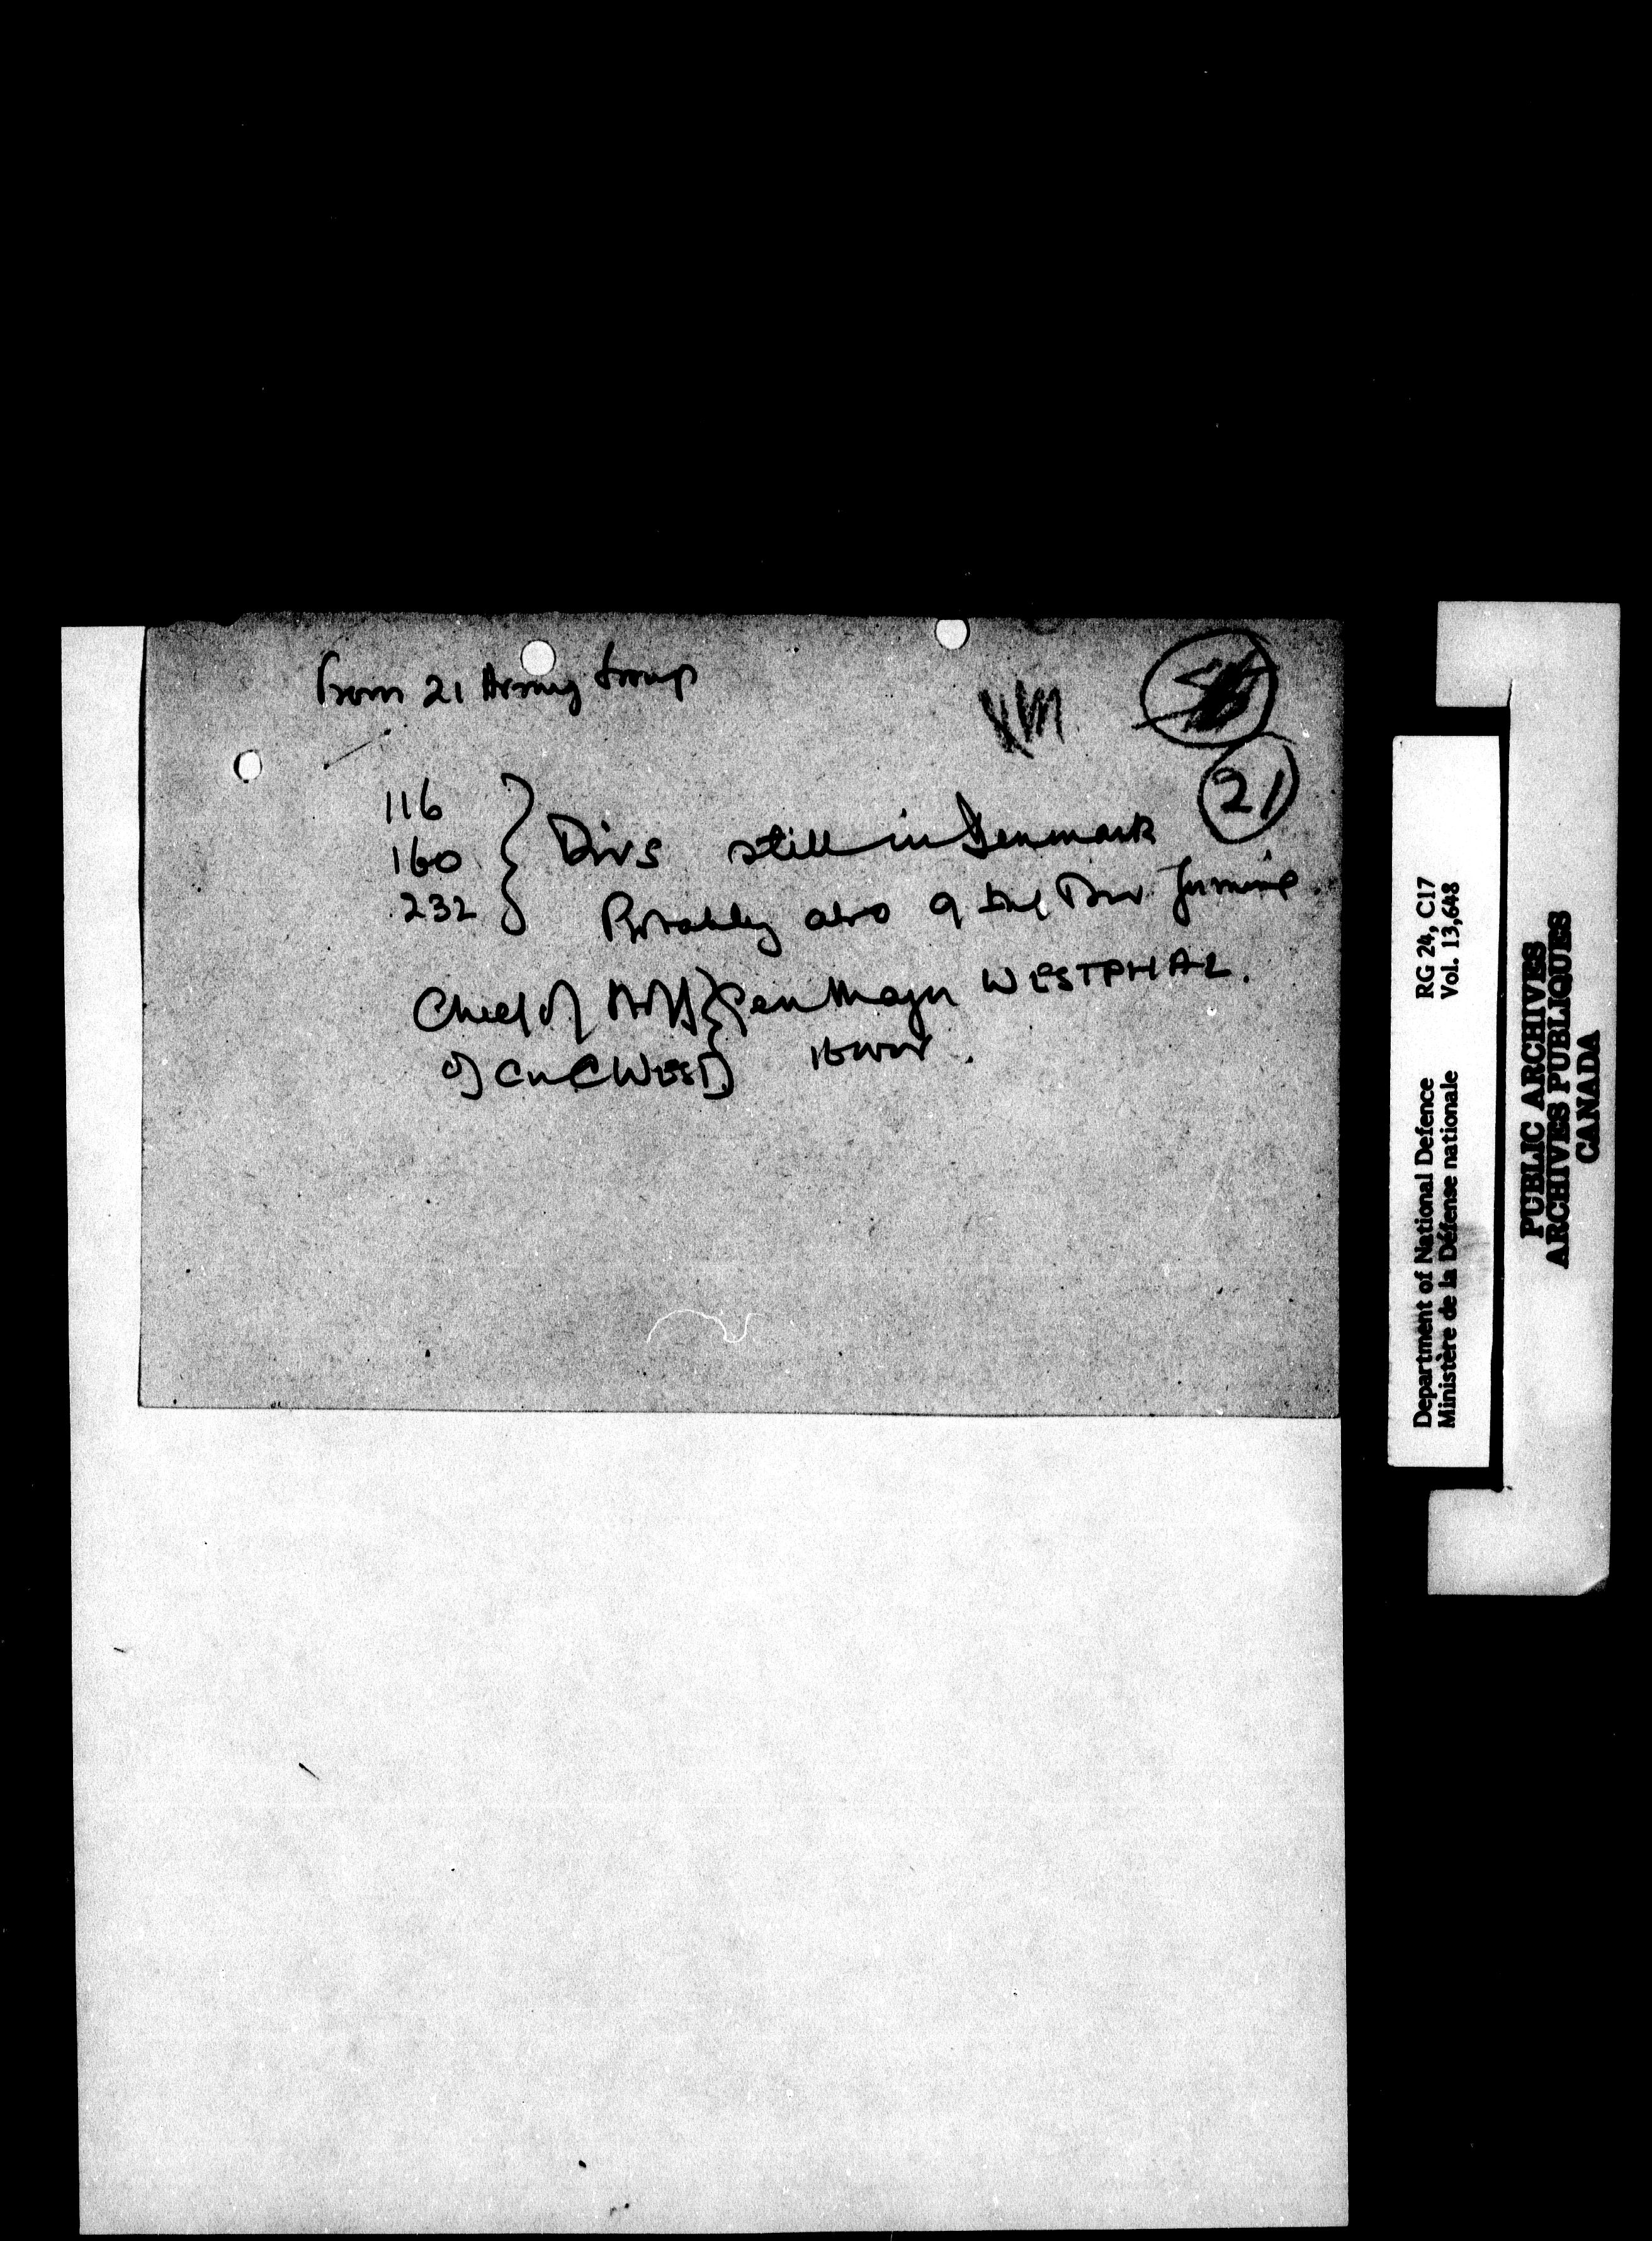 From 21 Army Group
21
116
160 Divs still in Denmark
232 Probably also 9 Inf Div forming.
Chief of Staff Gen Major WESTPHAL.
of C in C WEST
Department of National Defence RG 24, C17
Ministère de la Défense nationale Vol. 13,648
PUBLIC ARCHIVES
ARCHIVES PUBLIQUES
CANADA